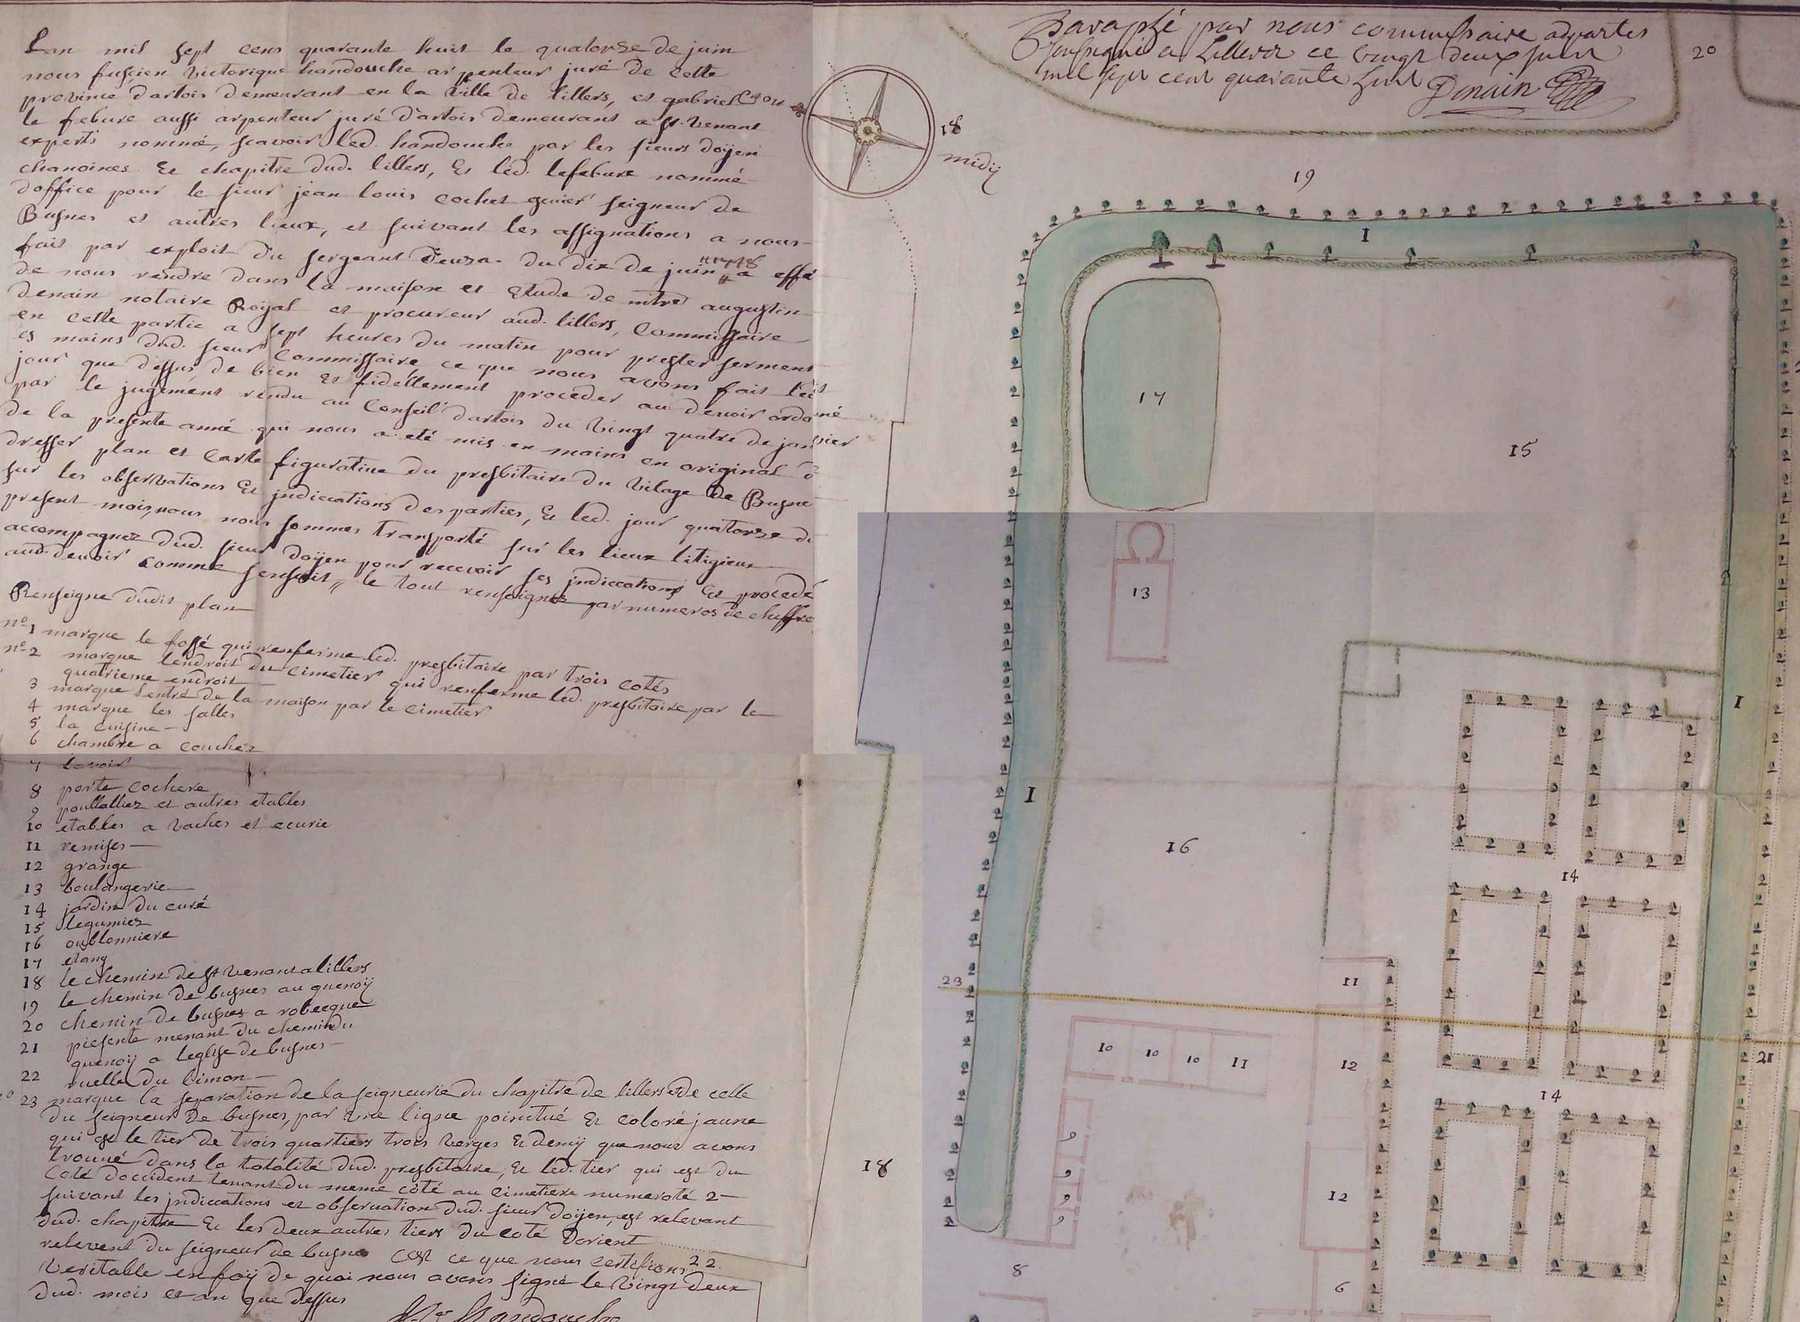 Lan mil sept cens quarante huit le quatorse de juin
nous fuscien victorique handouche arpenteur juré de cette
province dartois demeurant en la ville de lillers, et gabriel
le febure aussi arpenteur juré d'artois demeurant a st. venant
experts nommé, scavoir led. handouche par les sieurs doÿen
chanoines Et chapitre dud. lillers, Et led. lefebure nommé
doffice pour le sieur jean louis cochet seigneur de
Busnes et autres lieux, et suivant les assignations a nous
fait par exploit du sergeant du dix de juin 1748 a effe
de nous rendre dans la maison et Etude de mtre augustin
denain notaire Roÿal et procureur aud. lillers, Commissaire
en cette partie a sept heures du matin pour prester serment
es mains dud. sieur Commissaire ce que nous avons fait led
jour que dessus de bien Et fidellement proceder au devoir ordonné
par le jugément rendu au Conseil dartois du vingt quatre de janvier
de la presente anné qui nous a eté mis en mains en original
dresser plan et Carte figurative du presbitaire du vilage de Busne
sur les observations Et jndiccations des parties, Et led. jour quatorse du
present mois, nous nous sommes transporté sur les lieux litigieux
accompagnez dud. sieur doÿen pour recevoir ses jndiccations Et procedé
aud. devoir comme sensuit, le tout renseignez par numeros de chiffre
Renseigne dudit plan
no. 1 marque le fossé qui renferme led. presbitaire par trois cotés
no. 2 marque lendroit du cimetier qui renferme led. presbitaire par le
quatrieme endroit
3 marque Lentré de la maison par le cimetier
4 marque les salles
5 la cuisine
6 chambre a coucher
7 lavoir
8 porte cochere
9 poullallies et autres etables
10 etables a vaches et ecurie
11 remises
12 grange
13 boulangerie
14 jardin du curé
15 legumiez
16 oublonniere
17 etang
18 le chemin de st venant a lillers
19 le chemin de busnes au quenoÿ
20 chemin de busnes a robecque
21 piesente menant du chemin du
quenoÿ a leglise de busnes
22 ruelle du limon
23 marque la separation de la seigneurie du chapitre de lillers et de celle
du seigneur de busnes, par une ligne poinctué Et coloré jaune
qui est le tier de trois quartiers trois verges Et demÿ que nous avons
trouvé dans la totalité dud. presbitaire, Et led. tier qui est du
coté doccident tenant du meme coté au cimetiere numeroté 2
suivant les jndiccations et observation dud. sieur doÿen, est relevant
dud. chapitre Et les deux autres tiers du coté dorient
relevent du seigneur de busne Cest ce que nous certifions
veritable en foÿ de quoi nous avons signé le vingt deux
dud. mois et an que dessus
handouche
Paraphé par nous commissaire adpartes
soussigné a Lillers ce vingt deux juin
mil sept cent quarante huit Denain
20
18
midÿ
19
1
17
15
13
1
1
16
14
23
11
10 10 10 11
12
21
14
9
9
9
9
12
18
22
8
6